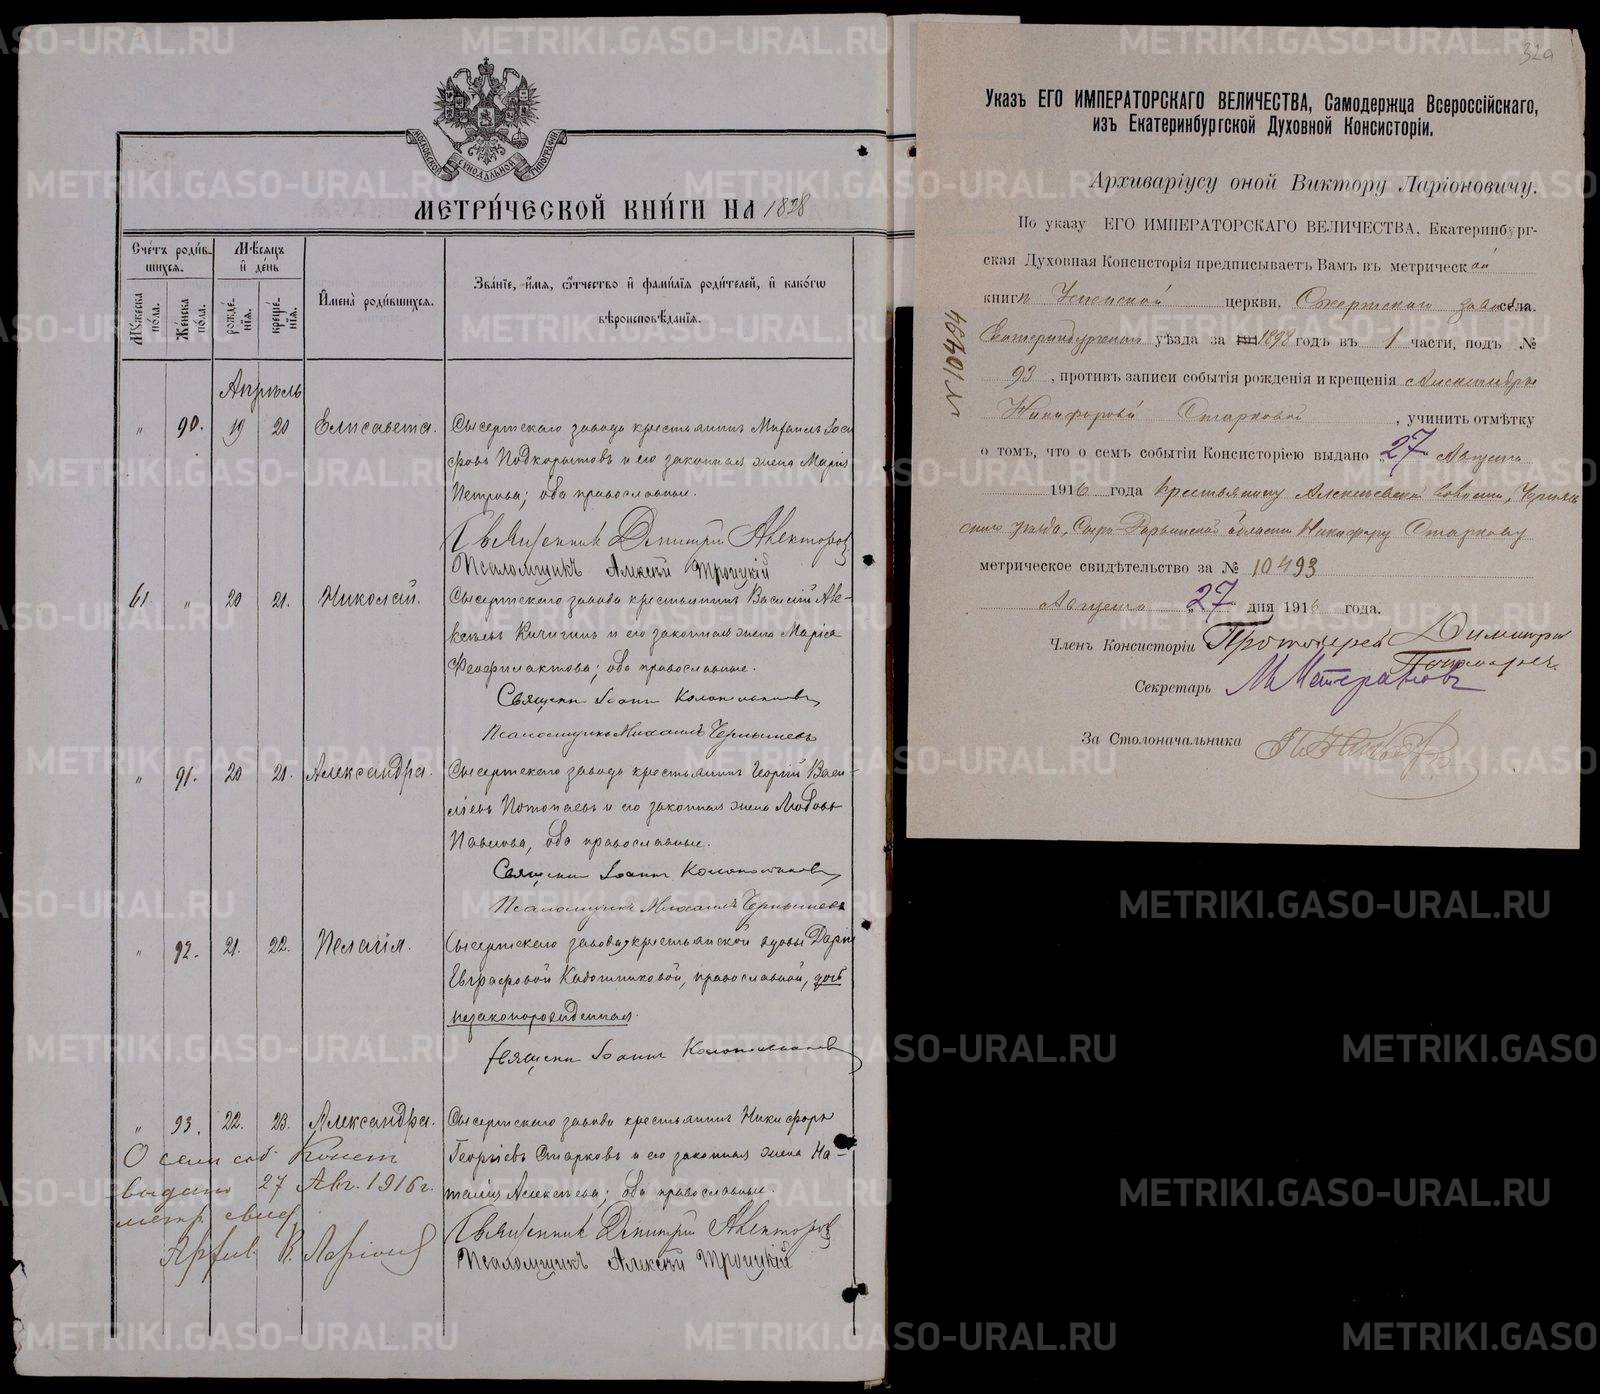 МОСКОВСКОЙ СѴНОДАЛЬНОЙ ТИПОГРАФІИ
МЕТРИ́ЧЕСКОЙ КНИ́ГИ НА 1898
Сче́тъ роди́в-
шихся.
Мѣ́сяцъ
и҆ де́нь
И҆мена̀ роди́вшихся.
Зва́нїе, и҆́мя, ѻ҆́тчество и҆ фами́лїя роди́телей, и҆ како́гѡ
вѣроисповѣ́данїя.
Мꙋ́жеска по́ла.
Же́нска по́ла.
рожде́-нїя.
креще́-нїя.
Апрѣль
" 90. 19 20 Елисавета. Сысертскаго завода крестьянинъ Михаилъ Іоси
фовъ Подкорытовъ и его законная жена Марія
Петрова; оба православные.
Священникъ Димитрій Авекторовъ
Псаломщикъ Алексѣй Троицкій
61. " 20 21. Николай. Сысертскаго завода крестьянинъ Василій Але-
ксѣевъ Кичигинъ и его законная жена Марія
Феофилактова; оба православные.
Священ Іоаннъ
Псаломщикъ Михаилъ Чернышевъ
" 91. 20 21. Александра. Сысертскаго завода крестьянинъ Георгій Васи-
льевъ Потопаевъ и его законная жена Любовь
Павлова, оба православные.
Священ Іоаннъ
Псаломщикъ Михаилъ Чернышевъ
" 92. 21. 22. Пелагія. Сысертскаго завода крестьянской вдовы Дарьи
Евграфовой православной, дочь
незаконорожденная.
Священ Іоаннъ
" 93. 22. 23. Александра. Сысертскаго завода крестьянинъ Никифоръ
Георгіевъ Старковъ и его законная жена На-
талія Алексѣева; оба православные.
Священникъ Димитрій Авекторовъ
Псаломщикъ Алексѣй Троицкій
О семъ соб. Конст
выдано 27 Авг. 1916 г.
метр. свид.
Архив. В. Ларіонов
32а
Указъ ЕГО ИМПЕРАТОРСКАГО ВЕЛИЧЕСТВА, Самодержца Всероссійскаго,
изъ Екатеринбургской Духовной Консисторіи.
Архиваріусу оной Виктору Ларіоновичу.
По указу ЕГО ИМПЕРАТОРСКАГО ВЕЛИЧЕСТВА, Екатеринбург-
ская Духовная Консисторія предписываетъ Вамъ въ метрической
книгѣ Успенской церкви, Сысертскаго завода села.
Екатеринбургскаго уѣзда за 1898 годъ въ 1 части, подъ №
93, противъ записи событія рожденія и крещенія Александры
Никифоровой Старковой, учинить отмѣтку
о томъ, что о семъ событіи Консисторіею выдано „27 Августа
1916 года крестьянину Алексѣевской волости,
уѣзда, Сыръ-Дарьинской области Никифору Старкову
метрическое свидѣтельство за № 10493
Августа „27" дня 1916 года.
№ 10494
Членъ Консисторіи Протоіерей Димитрій
Секретарь
За Столоначальника
METRIKI.GASO-URAL.RU